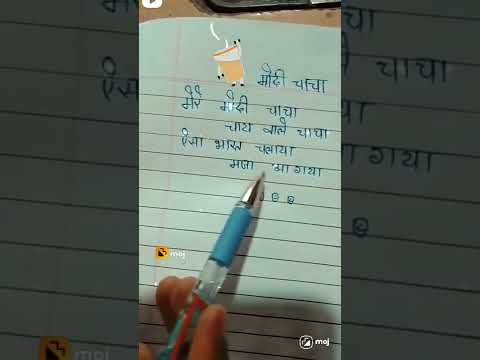 मोदी चाचा
मेरे मोदी चाचा
चाय वाले चाचा
ऐसा भारत चलाया
मजा आ गया
moj
moj